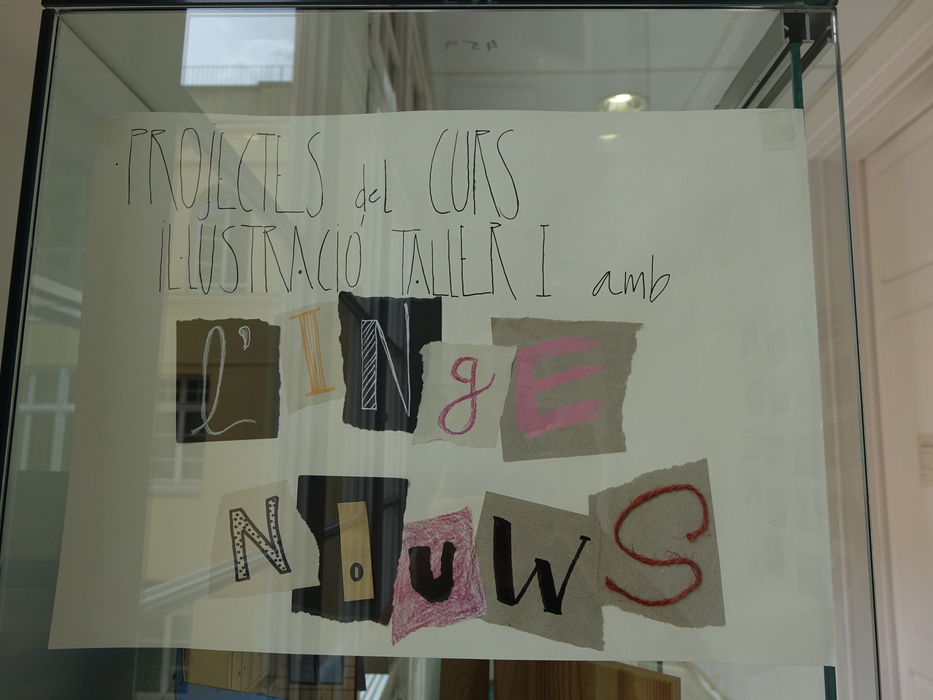 PROJECTES del CURS
IL·LUSTRACIÓ TALLER I amb
l'INgE
NouWS